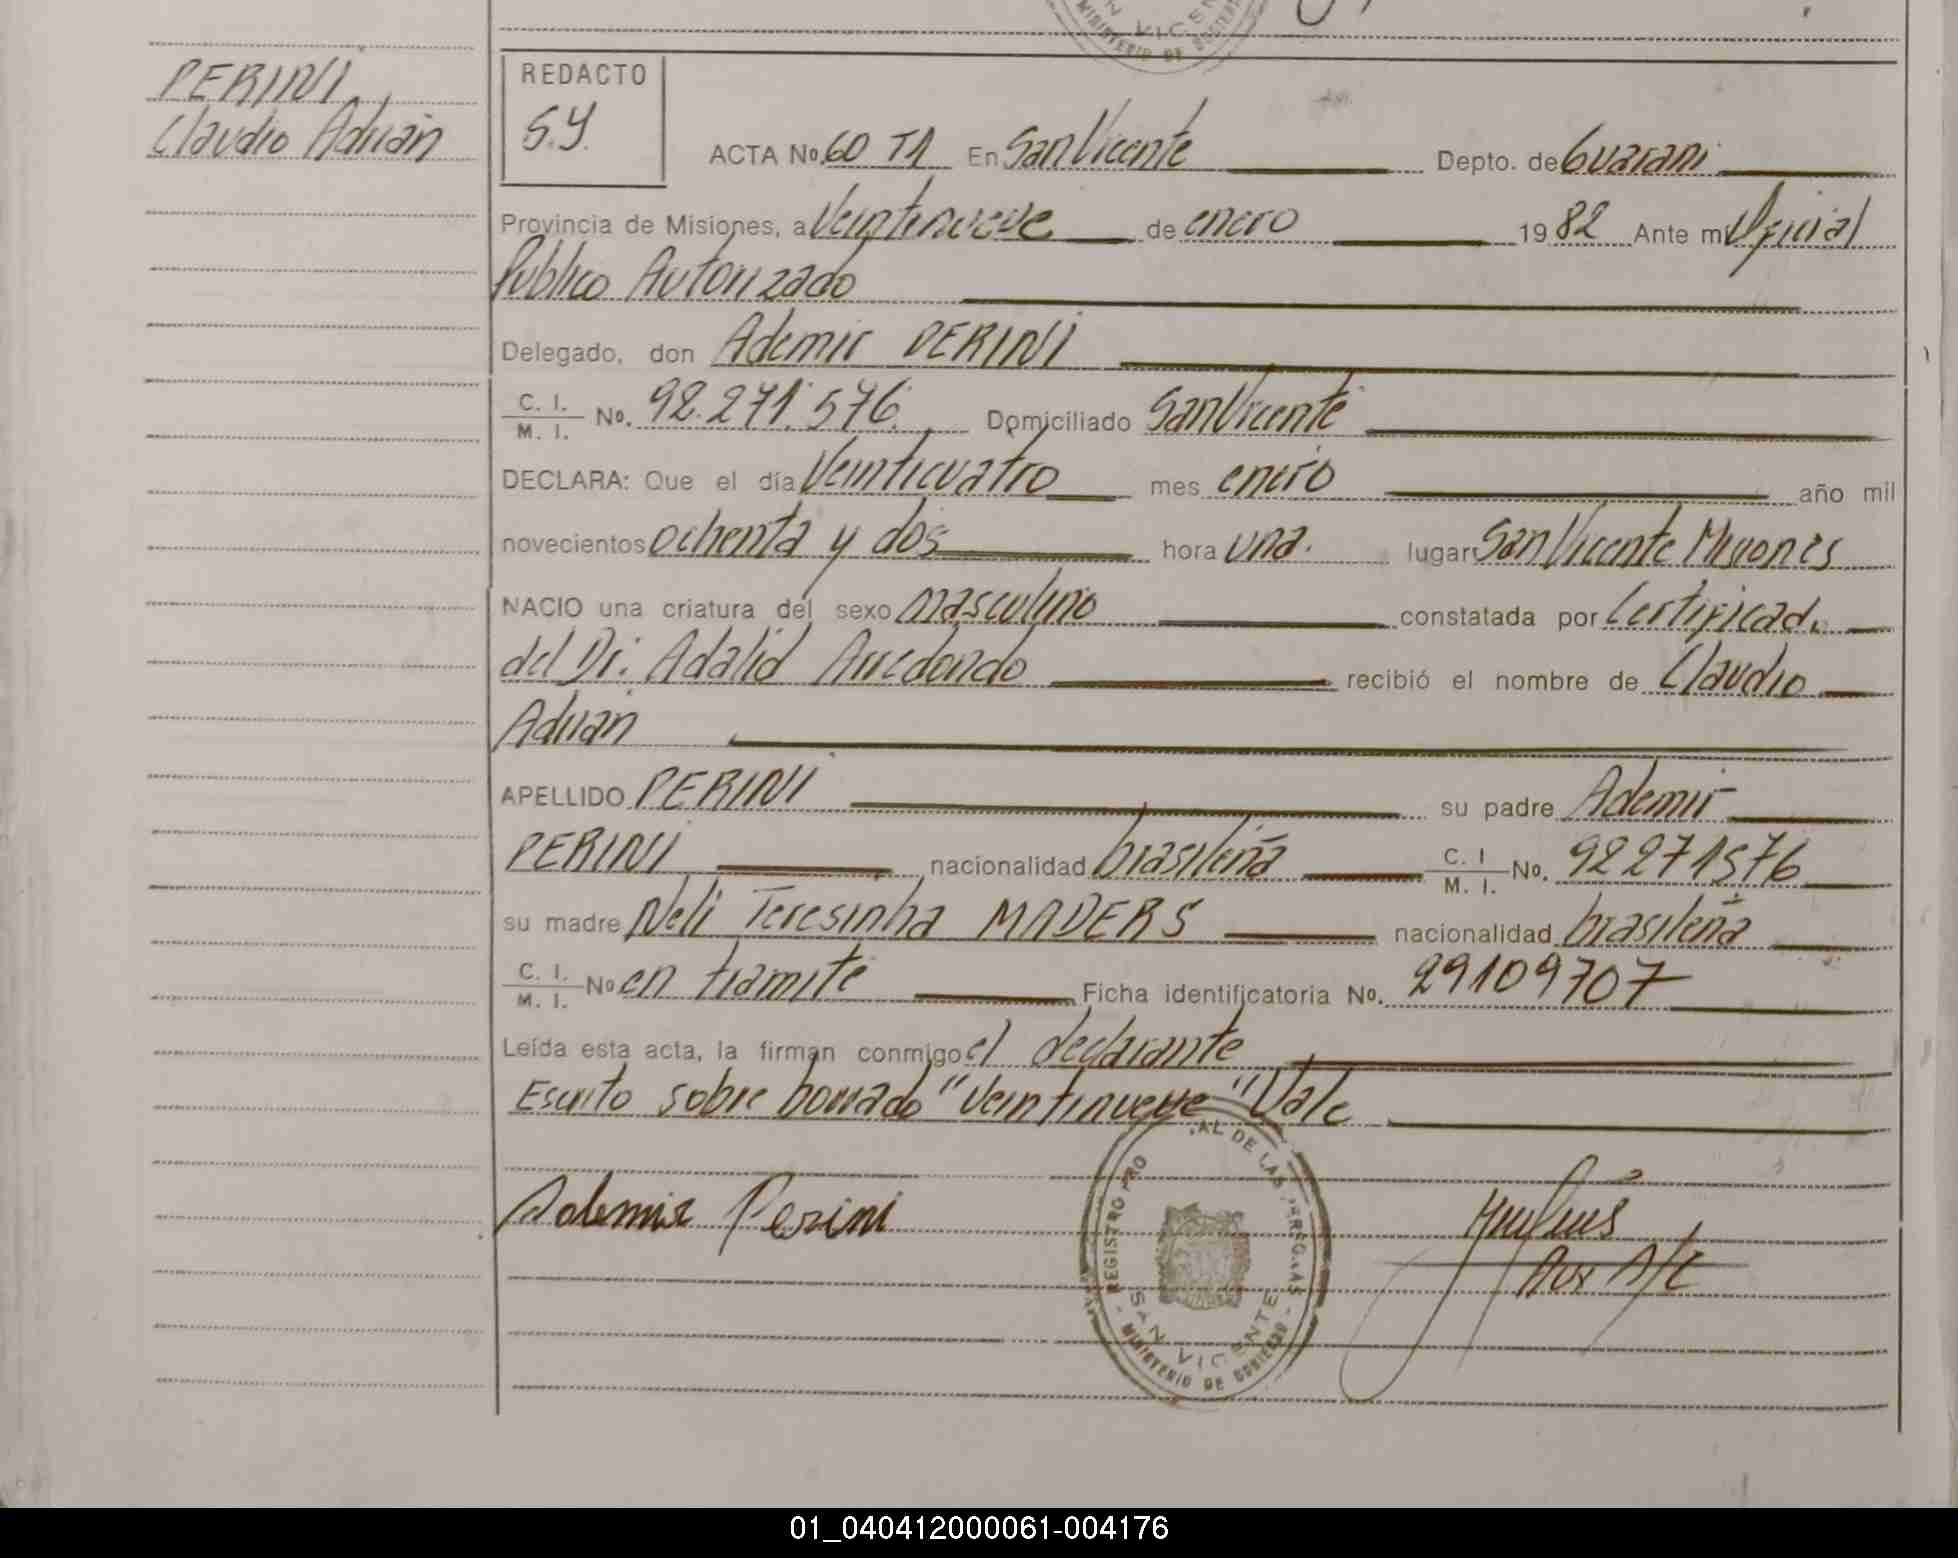 PERINI
Claudio Adrian
REDACTO
S.Y.
ACTA No. 60 T1 En San Vicente Depto. de Guarani
Provincia de Misiones, a Veintenueve de enero 1982 Ante mi Oficial
Publico Autorizado
Delegado, don Ademir PERINI
C. I. / M. I. No. 92.271.576. Domiciliado San Vicente
DECLARA: Que el día Veinticuatro mes enero año mil
novecientos ochenta y dos hora una. lugar San Vicente Misiones
NACIO una criatura del sexo masculino constatada por Certificad.
del Dr. Adalid Arredondo recibió el nombre de Claudio
Adrian
APELLIDO PERINI su padre Ademir
PERINI nacionalidad brasileña C. I / M. I. No. 92271576
su madre Neli Teresinha MADERS nacionalidad brasileña
C. I. / M. I. No en tramite Ficha identificatoria No. 29109707
Leída esta acta, la firman conmigo el declarante
Escrito sobre borrado "Veintinueve" Vale
Ademir Perini
REGISTRO PRO AL DE LAS PERSONAS
SAN VICENTE
MINISTERIO DE GOBIERNO
Aux A/C
01_040412000061-004176